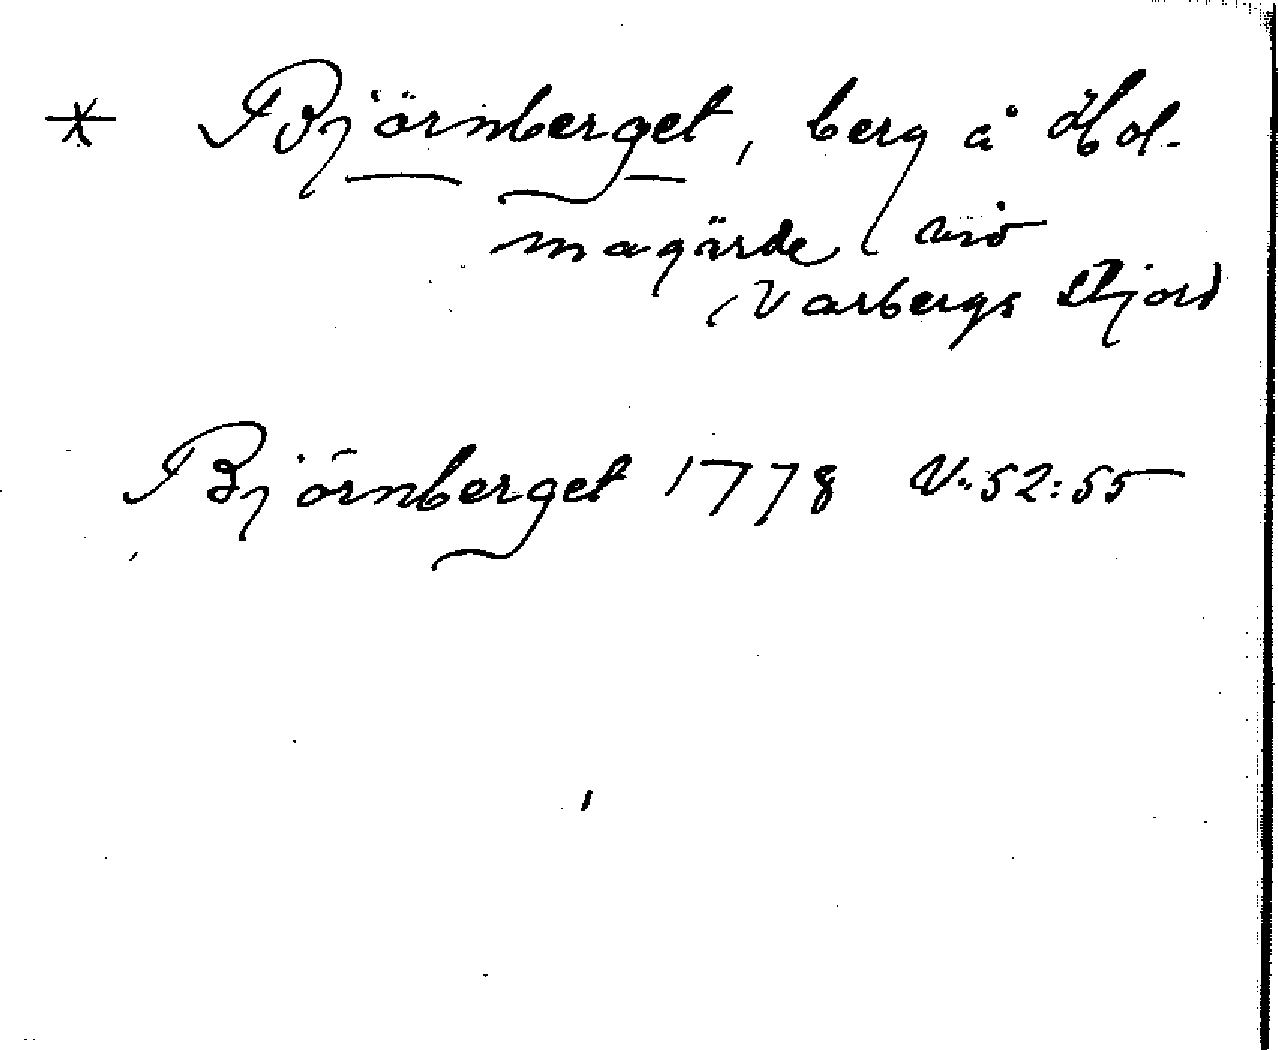 * Björnberget, berg å Hol-
magärde vid
Varbergs Stjord
Björnberget 1778 V. 52:55